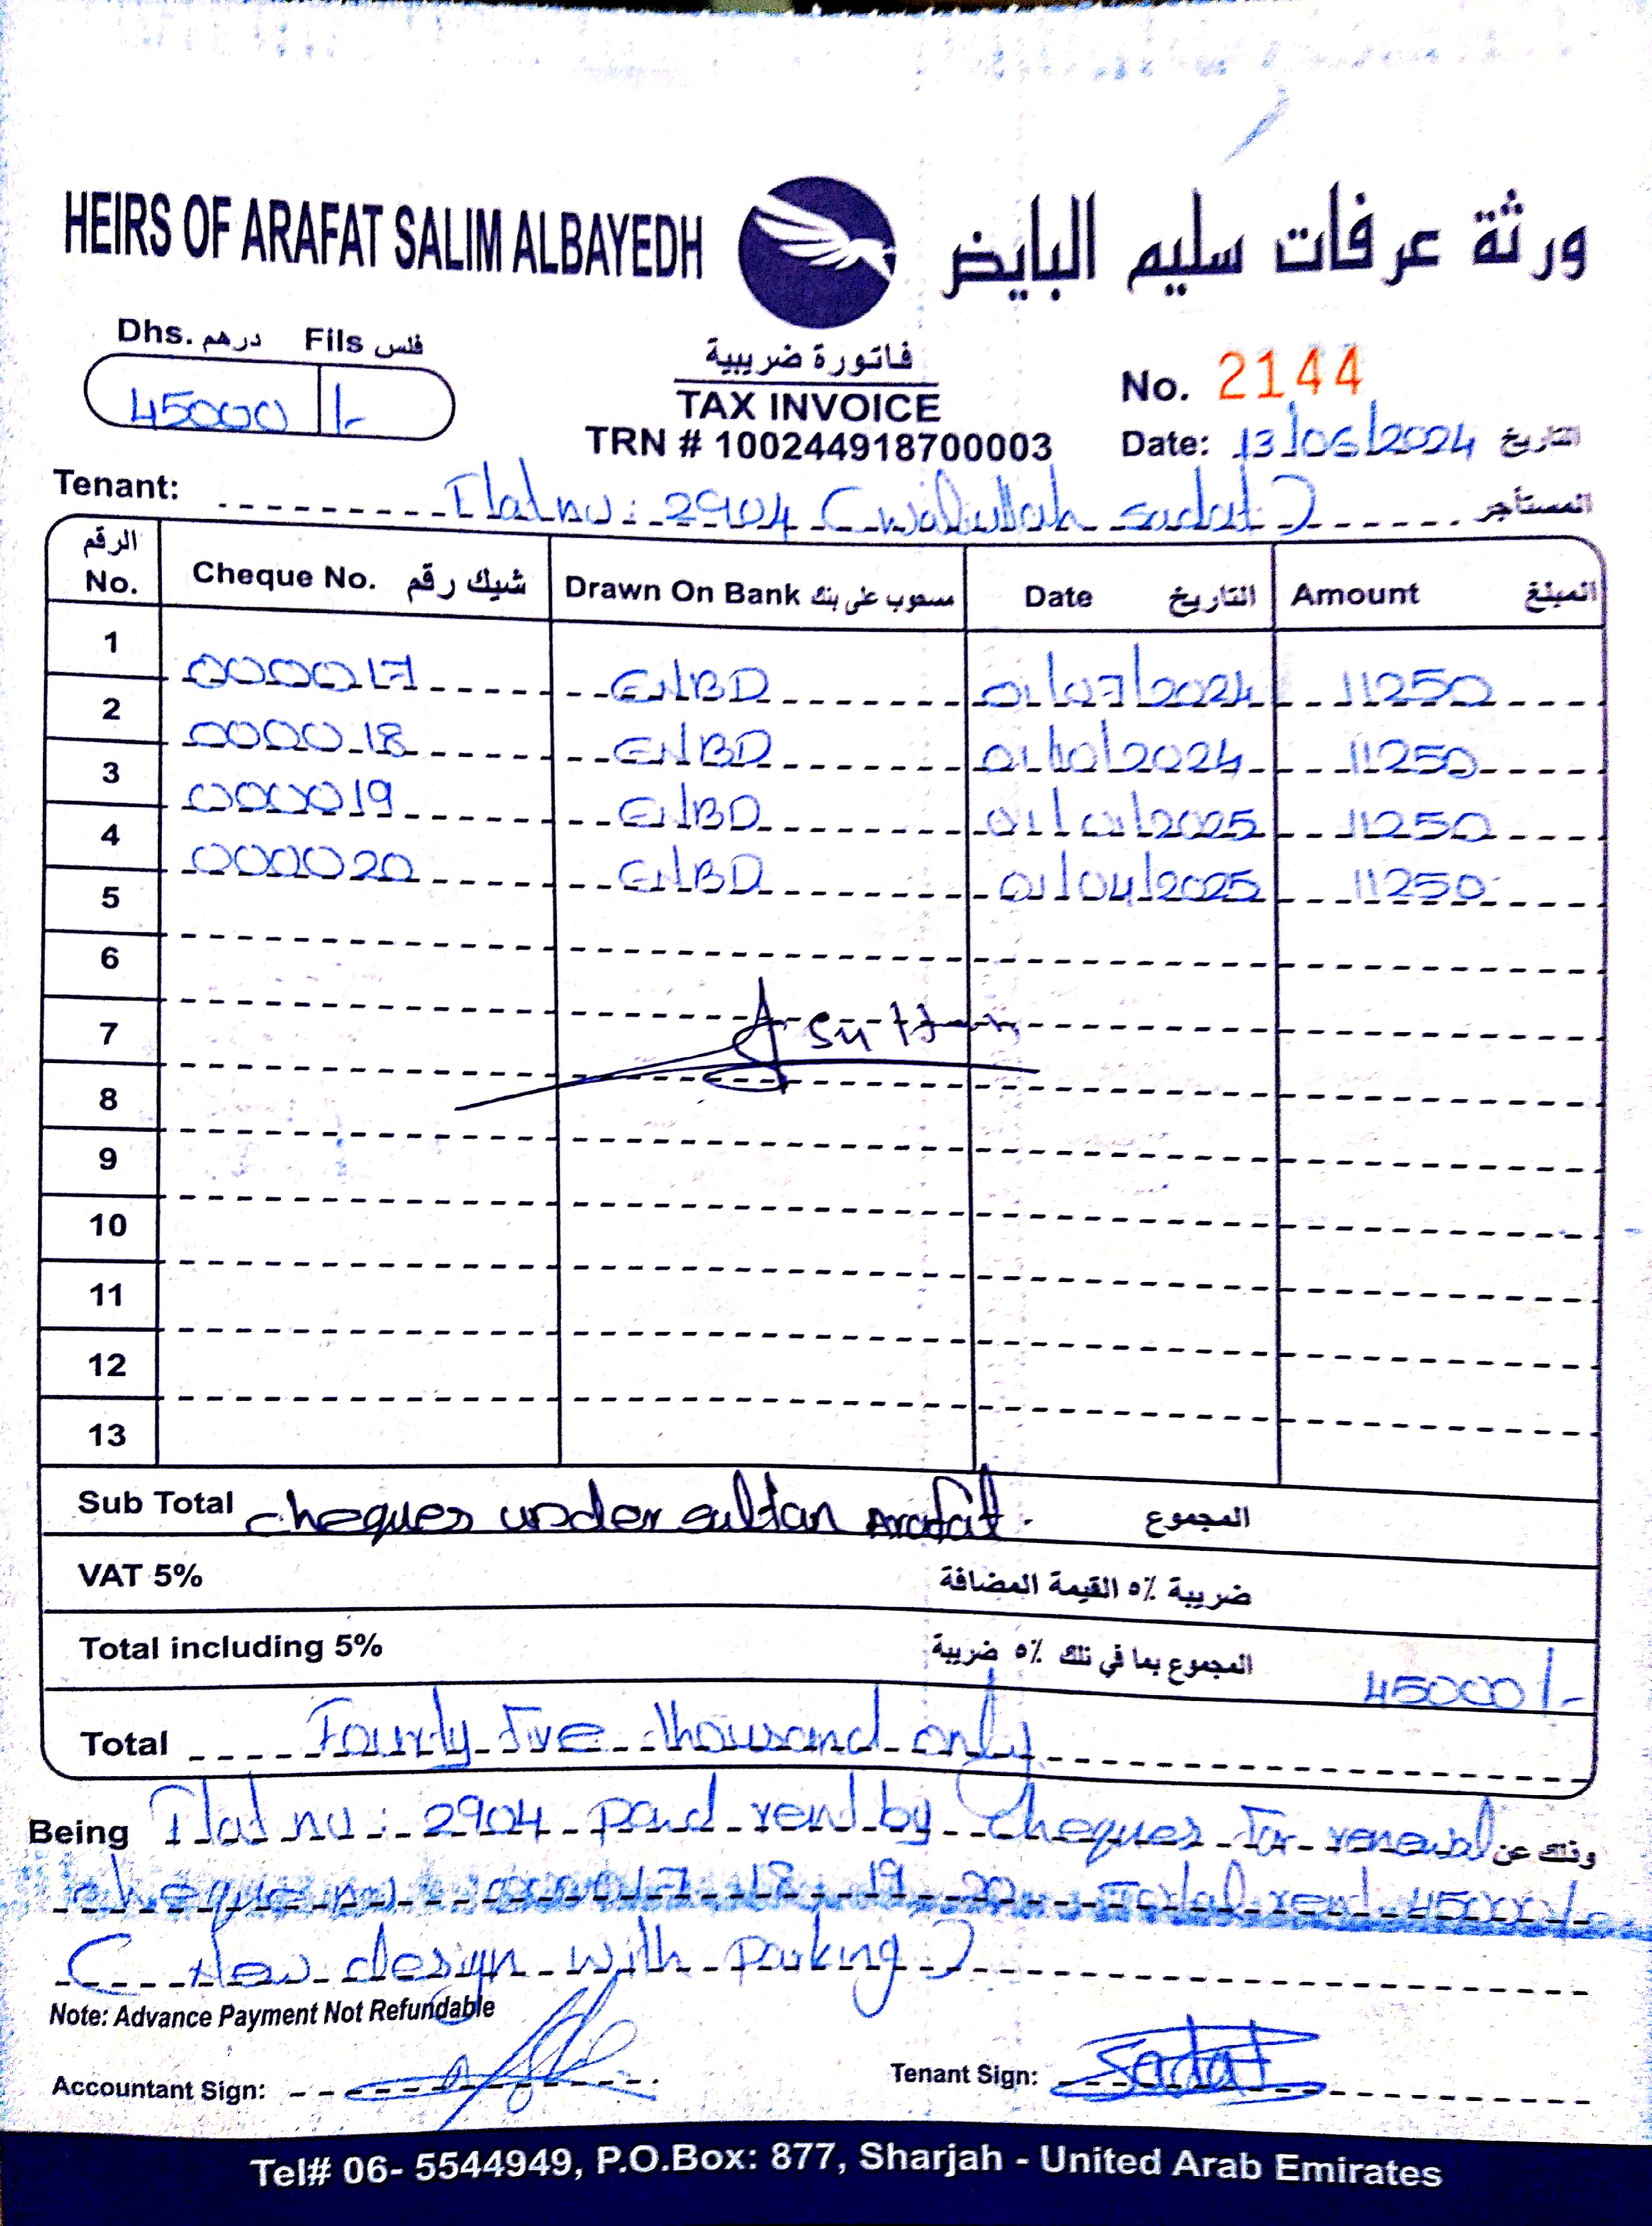 HEIRS OF ARAFAT SALIM ALBAYEDH ورثة عرفات سليم البايض
Dhs. درهم Fils فلس
45000 /-
فاتورة ضريبية
TAX INVOICE
TRN # 100244918700003
No. 2144
Date: 13/06/2024 التاريخ
Tenant: Flat no: 2904 (Waliullah sadat) المستأجر
الرقم No. Cheque No. شيك رقم Drawn On Bank مسحوب على بنك Date التاريخ Amount المبلغ
1 000017 ENBD 01/07/2024 11250
2 000018 ENBD 01/10/2024 11250
3 000019 ENBD 01/01/2025 11250
4 000020 ENBD 01/04/2025 11250
5
6
7
8
9
10
11
12
13
Sub Total cheques under sultan Arafat. المجموع
VAT 5% ضريبة ٥٪ القيمة المضافة
Total including 5% المجموع بما في تلك ٥٪ ضريبة 45000/-
Total Fourty Five thousand only
Being Flat no: 2904 paid rent by Cheques For renewal وذلك عن
cheque no 000017 - 18 - 19 - 20 Total rent 45000/-
(New design with parking)
Note: Advance Payment Not Refundable
Accountant Sign: Tenant Sign: Sadat
Tel# 06- 5544949, P.O.Box: 877, Sharjah - United Arab Emirates